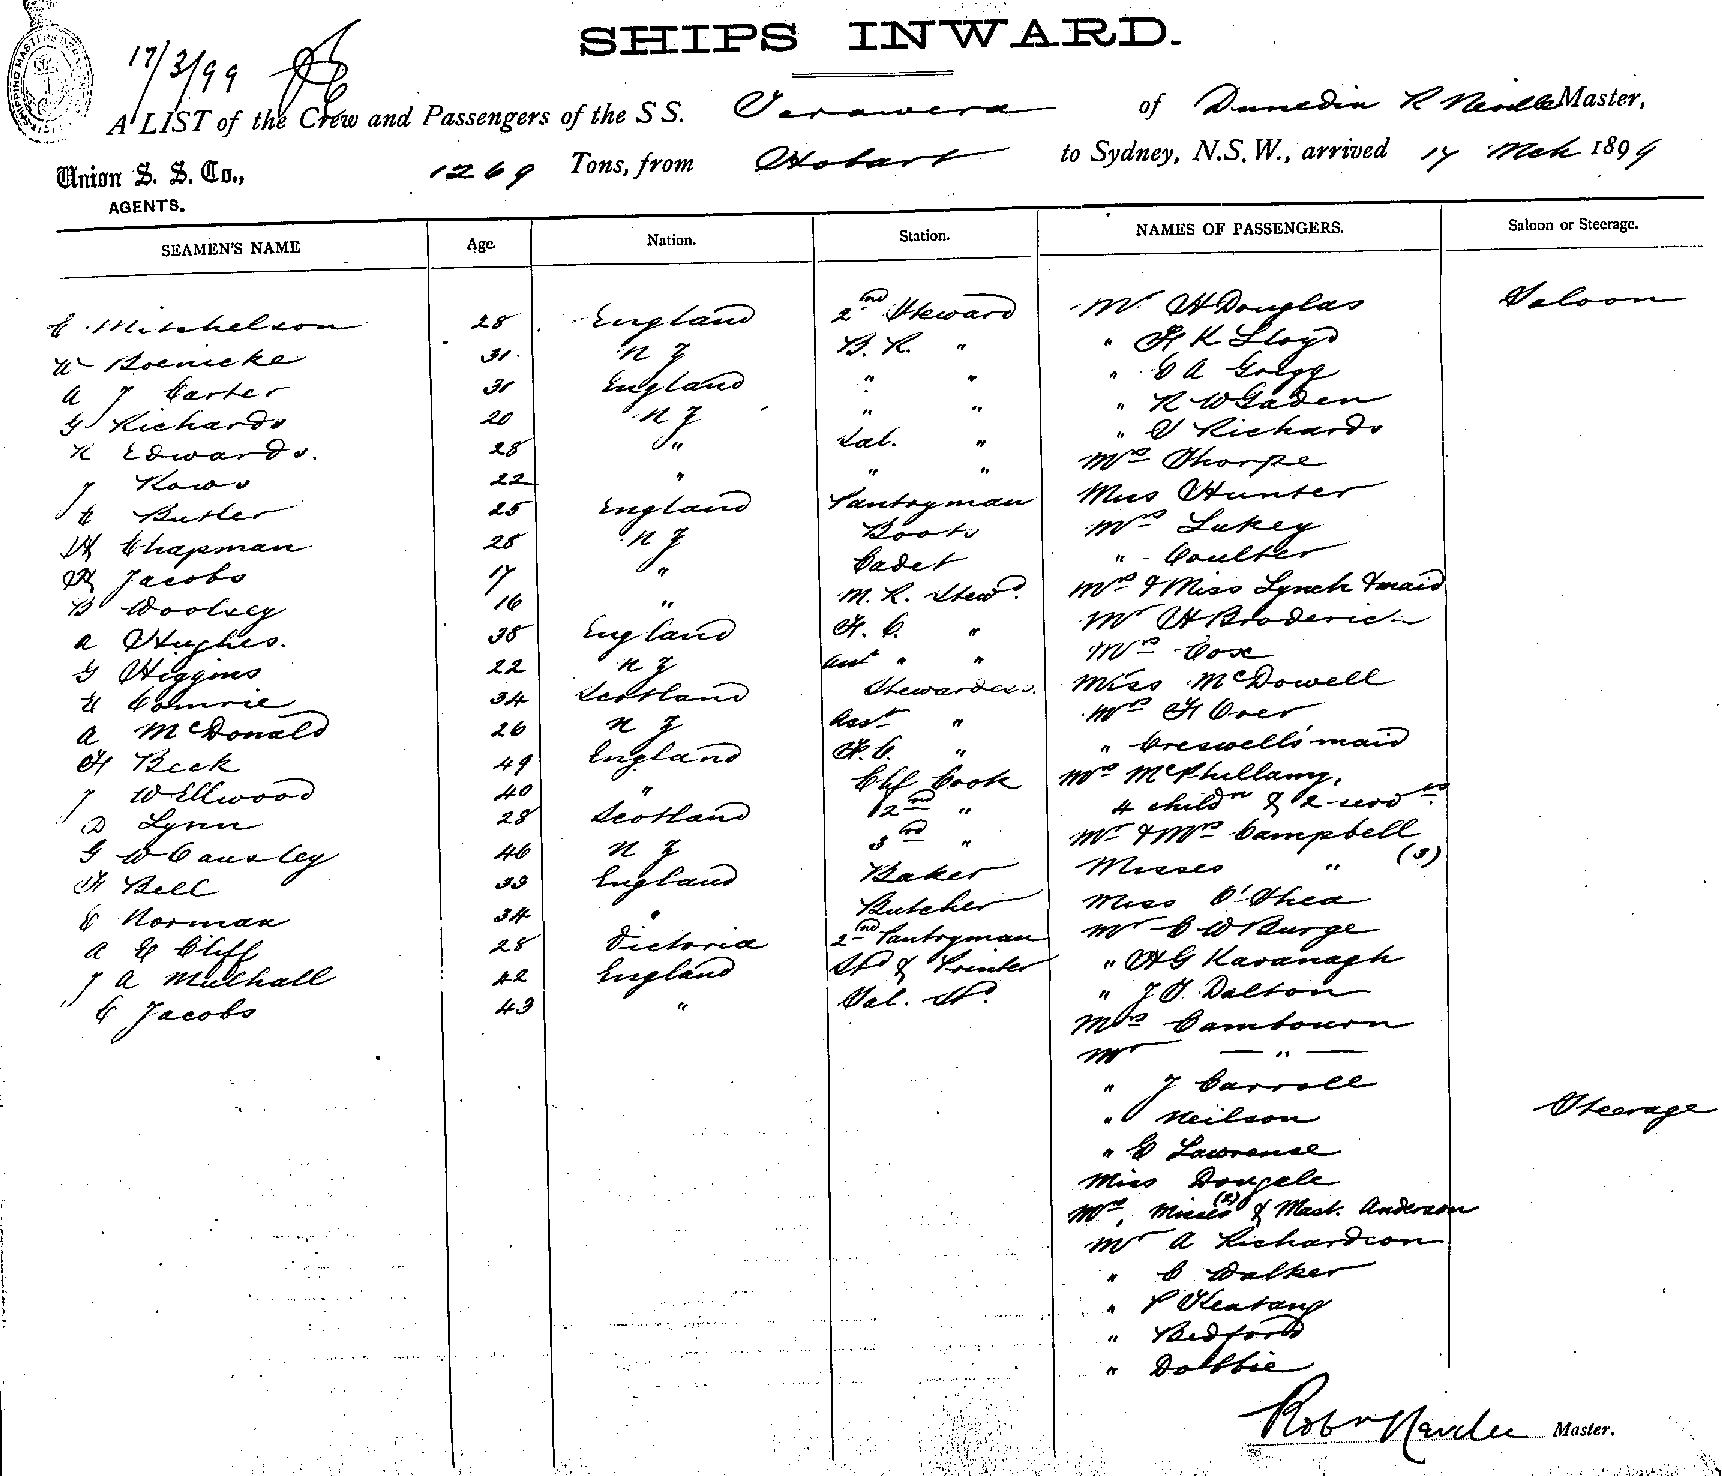 SHIPS INWARD.
17/3/99
A LIST of the Crew and Passengers of the S S. Tarawera of Dunedin R Neville Master,
Union S. S. Co., 1269 Tons, from Hobart to Sydney, N.S.W., arrived 17 Mch 1899
AGENTS.
SEAMEN'S NAME Age. Nation. Station. NAMES OF PASSENGERS. Saloon or Steerage.
C Mitchelson 28 England 2nd Steward Mr H Douglas Saloon
W Boenicke 31 N Z B. R. " " H K Lloyd
A J Carter 31 England " " " C A Gregg
G Richards 20 N Z " " " R W Gaden
R Edwards. 28 " Sal. " " T Richards
J Rows 22 " " " Mrs Thorpe
E Butler 25 England Pantryman Miss Hunter
W Chapman 28 N Z Boots Mrs Lakey
H Jacobs 17 " Cadet " Coulter
B Woolsey 16 " M. R. Stewd. Mrs & Miss Lynch & maid
A Hughes. 38 England F. C. " Mr H Broderick
G Higgins 22 N Z Asst " " Mrs Cox
E Comrie 34 Scotland Stewardess. Miss McDowell
A McDonald 26 N Z Asst " Mrs F Over
H Beck 49 England F. C. " " Creswell's maid
J W Ellwood 40 " Chf Cook Mrs McPhillamy,
D Lynn 28 Scotland 2nd " 4 childn & 2 servts
G W Causley 46 N Z 3rd " Mr & Mrs Campbell
F Bell 33 England Baker Misses " (3)
C Norman 34 " Butcher Miss O'Shea
A E Cliff 28 Victoria 2nd Pantryman Mr C W Burge
J A Mulhall 42 England Std & Printer " H G Kavanagh
C Jacobs 43 " Sal. Std. " J T. Dalton
Mrs Cambourn
Mr — " —
" J Carroll
" Neilson Steerage
" E Lawrence
Miss Dougele
Mrs, Misses (2) & Mast. Anderson
Mr A Richardson
" C Walker
" P
" Bedford
" Dobbie
Robt Neville Master.